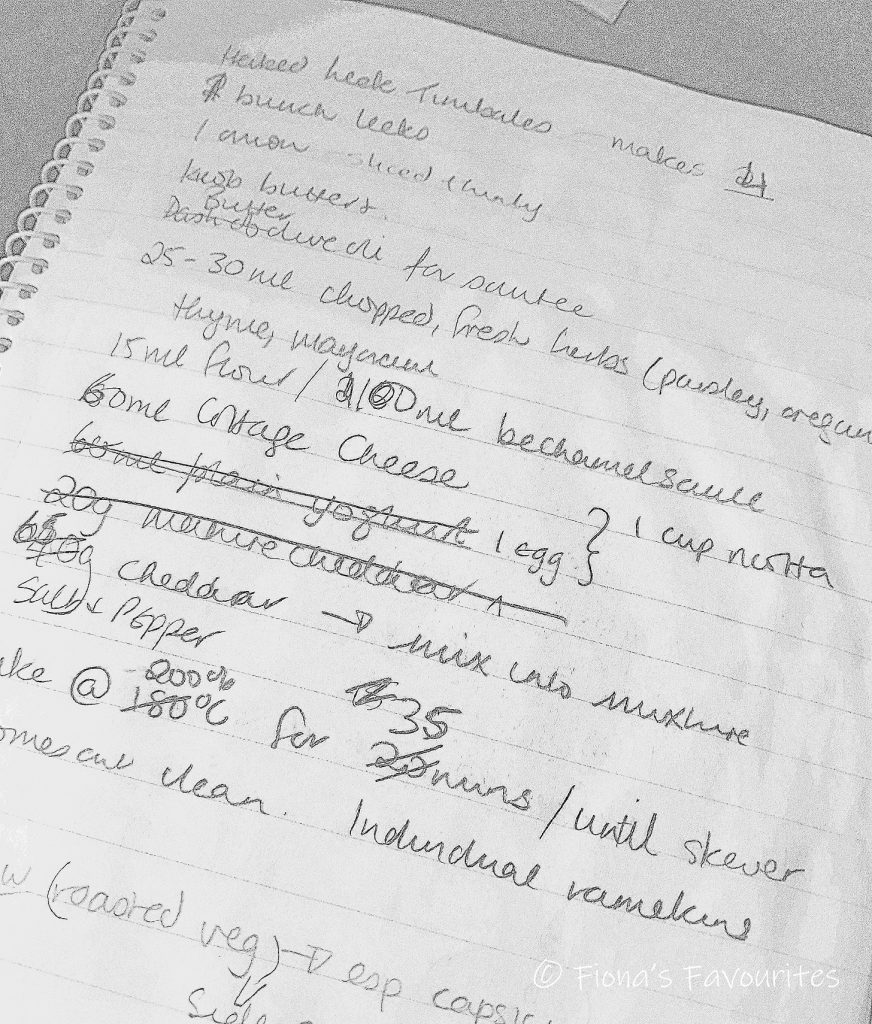 Herbed Leek Timbales - makes 4
1 bunch leeks
1 onion - sliced thinly
knob butter
Butter
Dash olive oil for sautee
25-30ml chopped, fresh herbs (parsley, oregan
thyme, marjoram
15ml flour / 100ml bechamel sauce
60ml Cottage Cheese
60ml plain yoghurt 1 egg } 1 cup ricotta
20g mature cheddar
65g cheddar → mix into mixture
Salt & Pepper
200°C 35
ke @ 180°C for mins / until skewer
omes out clean. Individual ramekins
w (roasted veg) → esp capsi
Side
© Fiona's Favourites